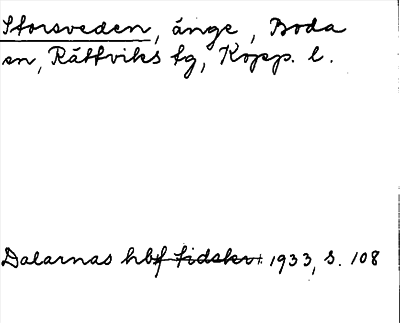 Storsveden, änge, Boda
sn, Rättviks tg, Kopp. l.
Dalarnas hbf tidskr. 1933, s. 108